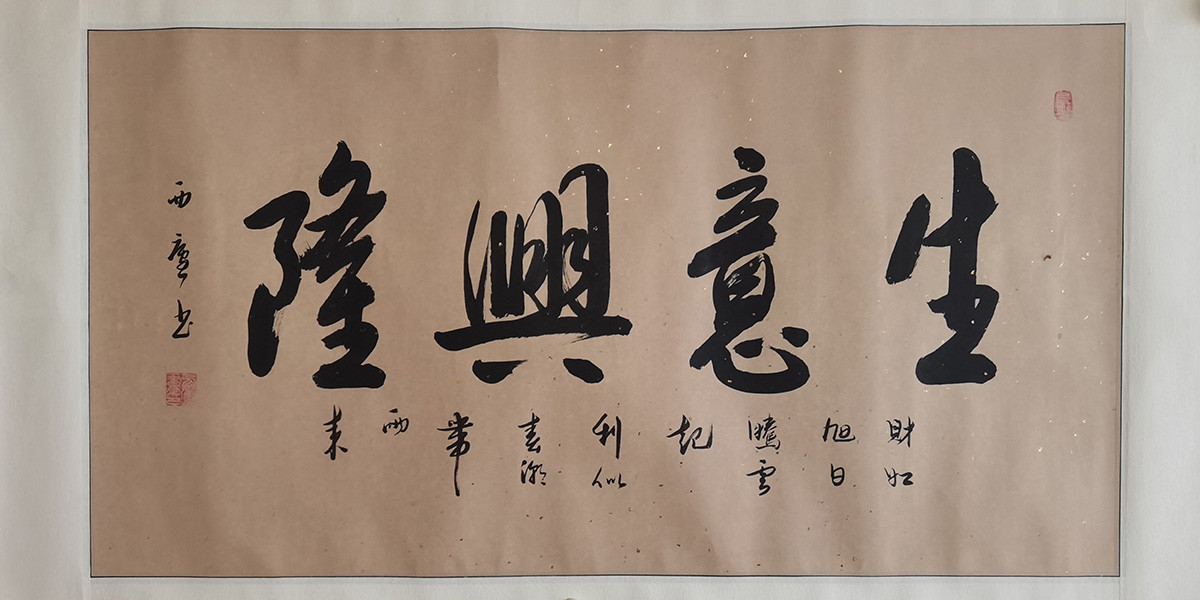 生意興隆
財如旭日騰雲起利似春潮帶雨来
雨廬书